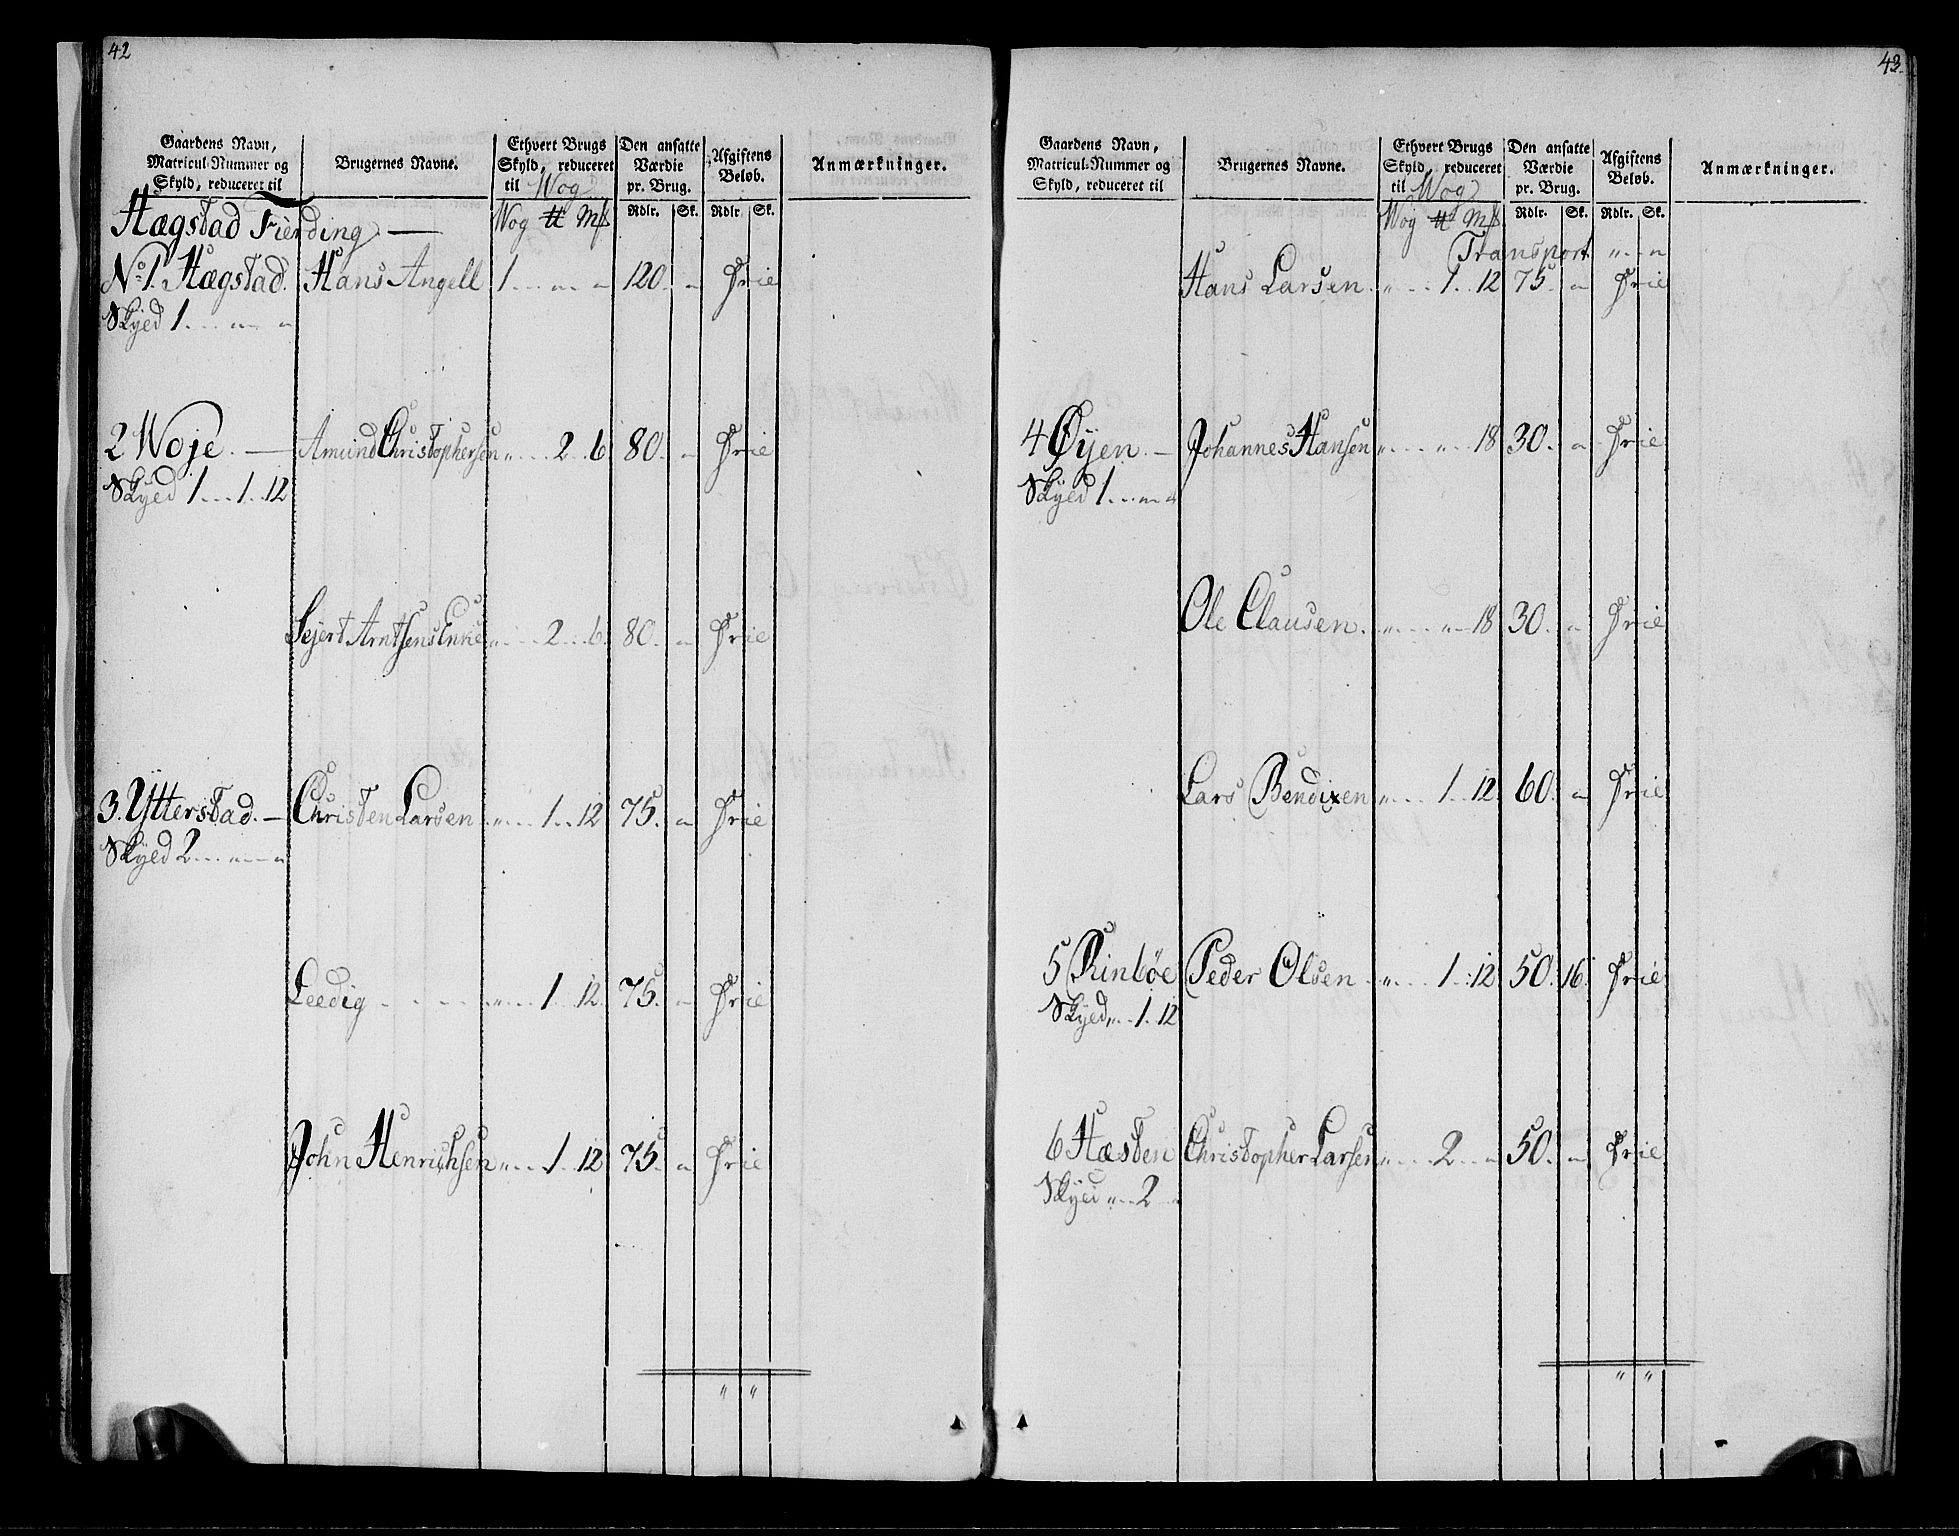 42
Gaardens Navn, Matricul-Nummer og Skyld, reduceret til
Brugernes Navne.
Ethvert Brugs Skyld, reduceret til Wog
Den ansatte Værdie pr. Brug.
Afgiftens Beløb.
Anmærkninger.
Wog ℔ Mk Rdlr. Sk. Rdlr. Sk.
Hægstad Fierding —
No 1. Hægstad. Hans Angell 1 . . . „ „ „ 120. „ Frie
Skyld 1 . . . „ „
2 Woje. — Amund Christophersen „ . . . 2 . 6 80. „ Frie
Skyld 1 . . . 1 . . 12
Sejert Arntsens Enke „ . . . 2 . . 6. 80. „ Frie
3. Ytterstad. — Christen Larsen „ . . . 1 . . 12 75. „ Frie
Skyld 2 . . . „ „
Leedig - - - - „ . . . 1 . . 12. 75. „ Frie
John Henrichsen „ . . . 1 . . 12 75. „ Frie
„ „
43.
Gaardens Navn, Matricul-Nummer og Skyld, reduceret til
Brugernes Navne.
Ethvert Brugs Skyld, reduceret til Wog
Den ansatte Værdie pr. Brug.
Afgiftens Beløb.
Anmærkninger.
Wog ℔ Mk Rdlr. Sk. Rdlr. Sk.
Transport „ „
Hans Larsen. „ . . . 1 . . 12 75. „ Frie
4 Øyen. — Johannes Hansen „ . . . „ . . 18 30. „ Frie
Skyld 1 . . „ „
Ole Clausen. „ . . . „ 18 30. „ Frie
Lars Bendixen „ . . . 1 . . 12. 60. „ Frie
5 Rinbøe Peder Olsen „ . . . 1 . . 12 50. 16. Frie
Skyld „ . . 1 . 12
6 Hæsten Christopher Larsen „ . . . 2 . . „ 50. „ Frie
Skyld „ . . 2 „
„ „